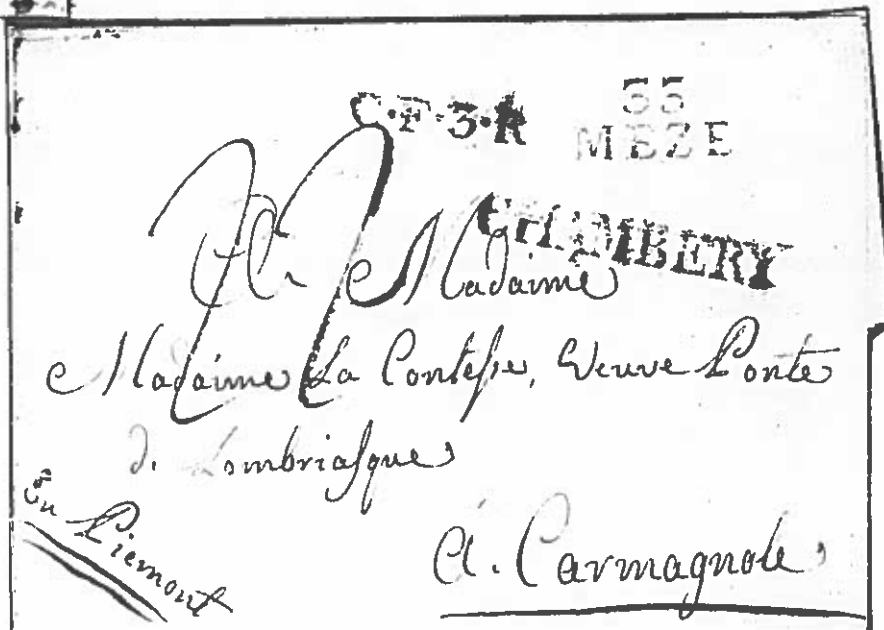 C.F.3.R
33
MEZE
CHAMBERY
A Madame
Madame La Contesse, Veuve Ponte
d. Lombriasque
En Piemont
A. Carmagnole